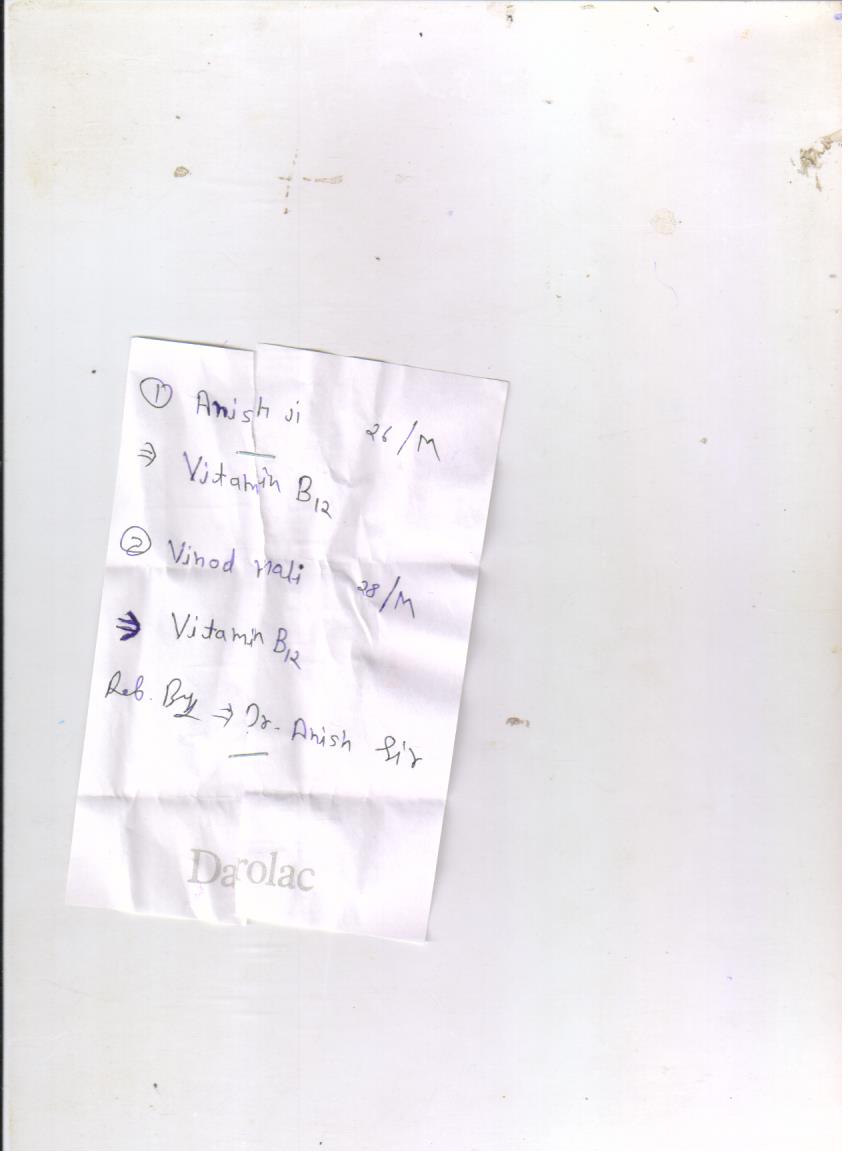 ① Anish Ji 26/M
⇒ Vitamin B₁₂
② Vinod Mali 28/M
⇒ Vitamin B₁₂
Ref. By ⇒ Dr. Anish Sir
Darolac